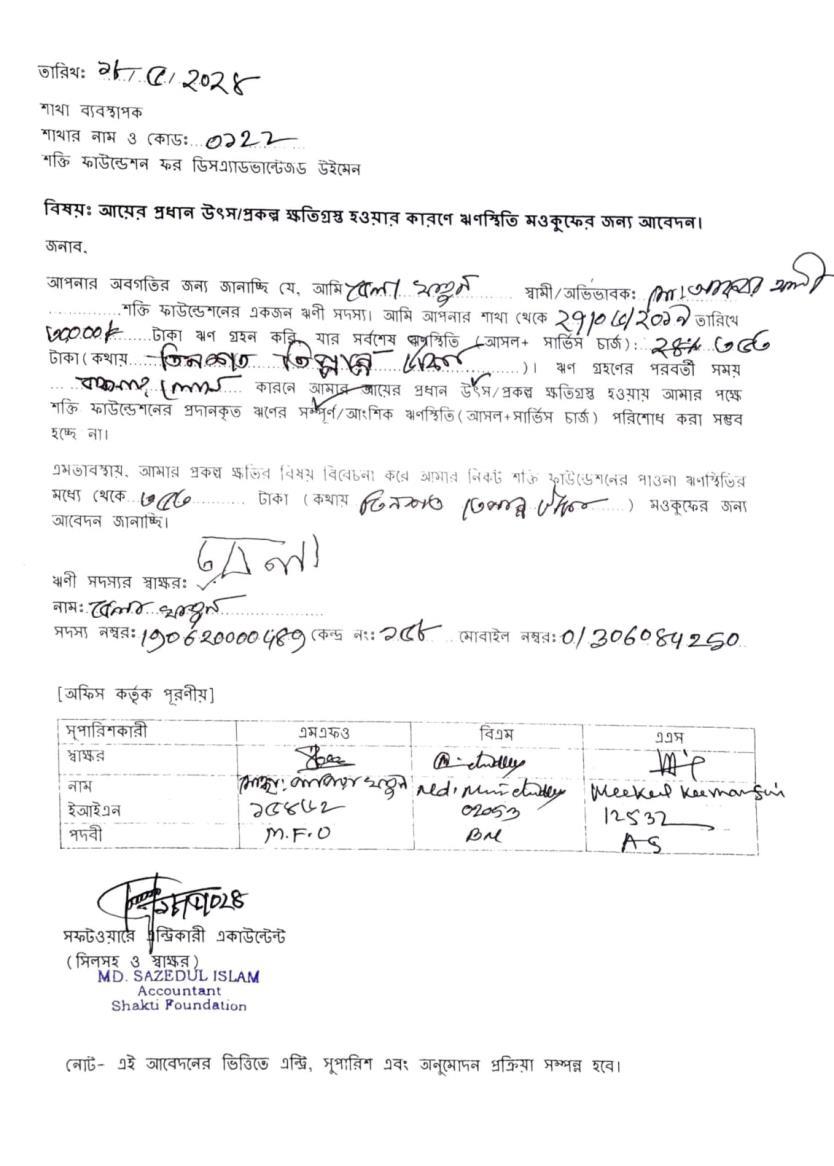 তারিখ: ১৮/৫/২০২৪
শাখা ব্যবস্থাপক
শাখার নাম ও কোড: ০১২২
শক্তি ফাউন্ডেশন ফর ডিসএ্যাডভান্টেজড উইমেন
বিষয়: আয়ের প্রধান উৎস/প্রকল্প ক্ষতিগ্রস্থ হওয়ার কারণে ঋণস্থিতি মওকুফের জন্য আবেদন।
জনাব,
আপনার অবগতির জন্য জানাচ্ছি যে, আমি বেলা খাতুন স্বামী/অভিভাবক: মোঃ আকবর আলী
শক্তি ফাউন্ডেশনের একজন ঋণী সদস্য। আমি আপনার শাখা থেকে তারিখে
৩০০০০৳ টাকা ঋণ গ্রহন করি, যার সর্বশেষ ঋণস্থিতি (আসল+ সার্ভিস চার্জ):
টাকা (কথায় তিনশত )। ঋণ গ্রহণের পরবর্তী সময়
কারনে আমার আয়ের প্রধান উৎস/প্রকল্প ক্ষতিগ্রস্থ হওয়ায় আমার পক্ষে
শক্তি ফাউন্ডেশনের প্রদানকৃত ঋণের সম্পূর্ণ/আংশিক ঋণস্থিতি (আসল+সার্ভিস চার্জ) পরিশোধ করা সম্ভব
হচ্ছে না।
এমতাবস্থায়, আমার প্রকল্প ক্ষতির বিষয় বিবেচনা করে আমার নিকট শক্তি ফাউন্ডেশনের পাওনা ঋণস্থিতির
মধ্যে থেকে টাকা (কথায় তিনশত ) মওকুফের জন্য
আবেদন জানাচ্ছি।
ঋণী সদস্যর স্বাক্ষর: বেলা
নাম: বেলা খাতুন
সদস্য নম্বর: 190620000489 কেন্দ্র নং: ১৫৮ মোবাইল নম্বর: 01306084250
[অফিস কর্তৃক পূরনীয়]
সুপারিশকারী এমএফও বিএম এএস
স্বাক্ষর
নাম
ইআইএন ১৫৪৮২ 02053 12532
পদবী M.F.O BM AS
সফটওয়ারে এন্ট্রিকারী একাউন্টেন্ট
(সিলসহ ও স্বাক্ষর)
MD. SAZEDUL ISLAM
Accountant
Shakti Foundation
নোট- এই আবেদনের ভিত্তিতে এন্ট্রি, সুপারিশ এবং অনুমোদন প্রক্রিয়া সম্পন্ন হবে।